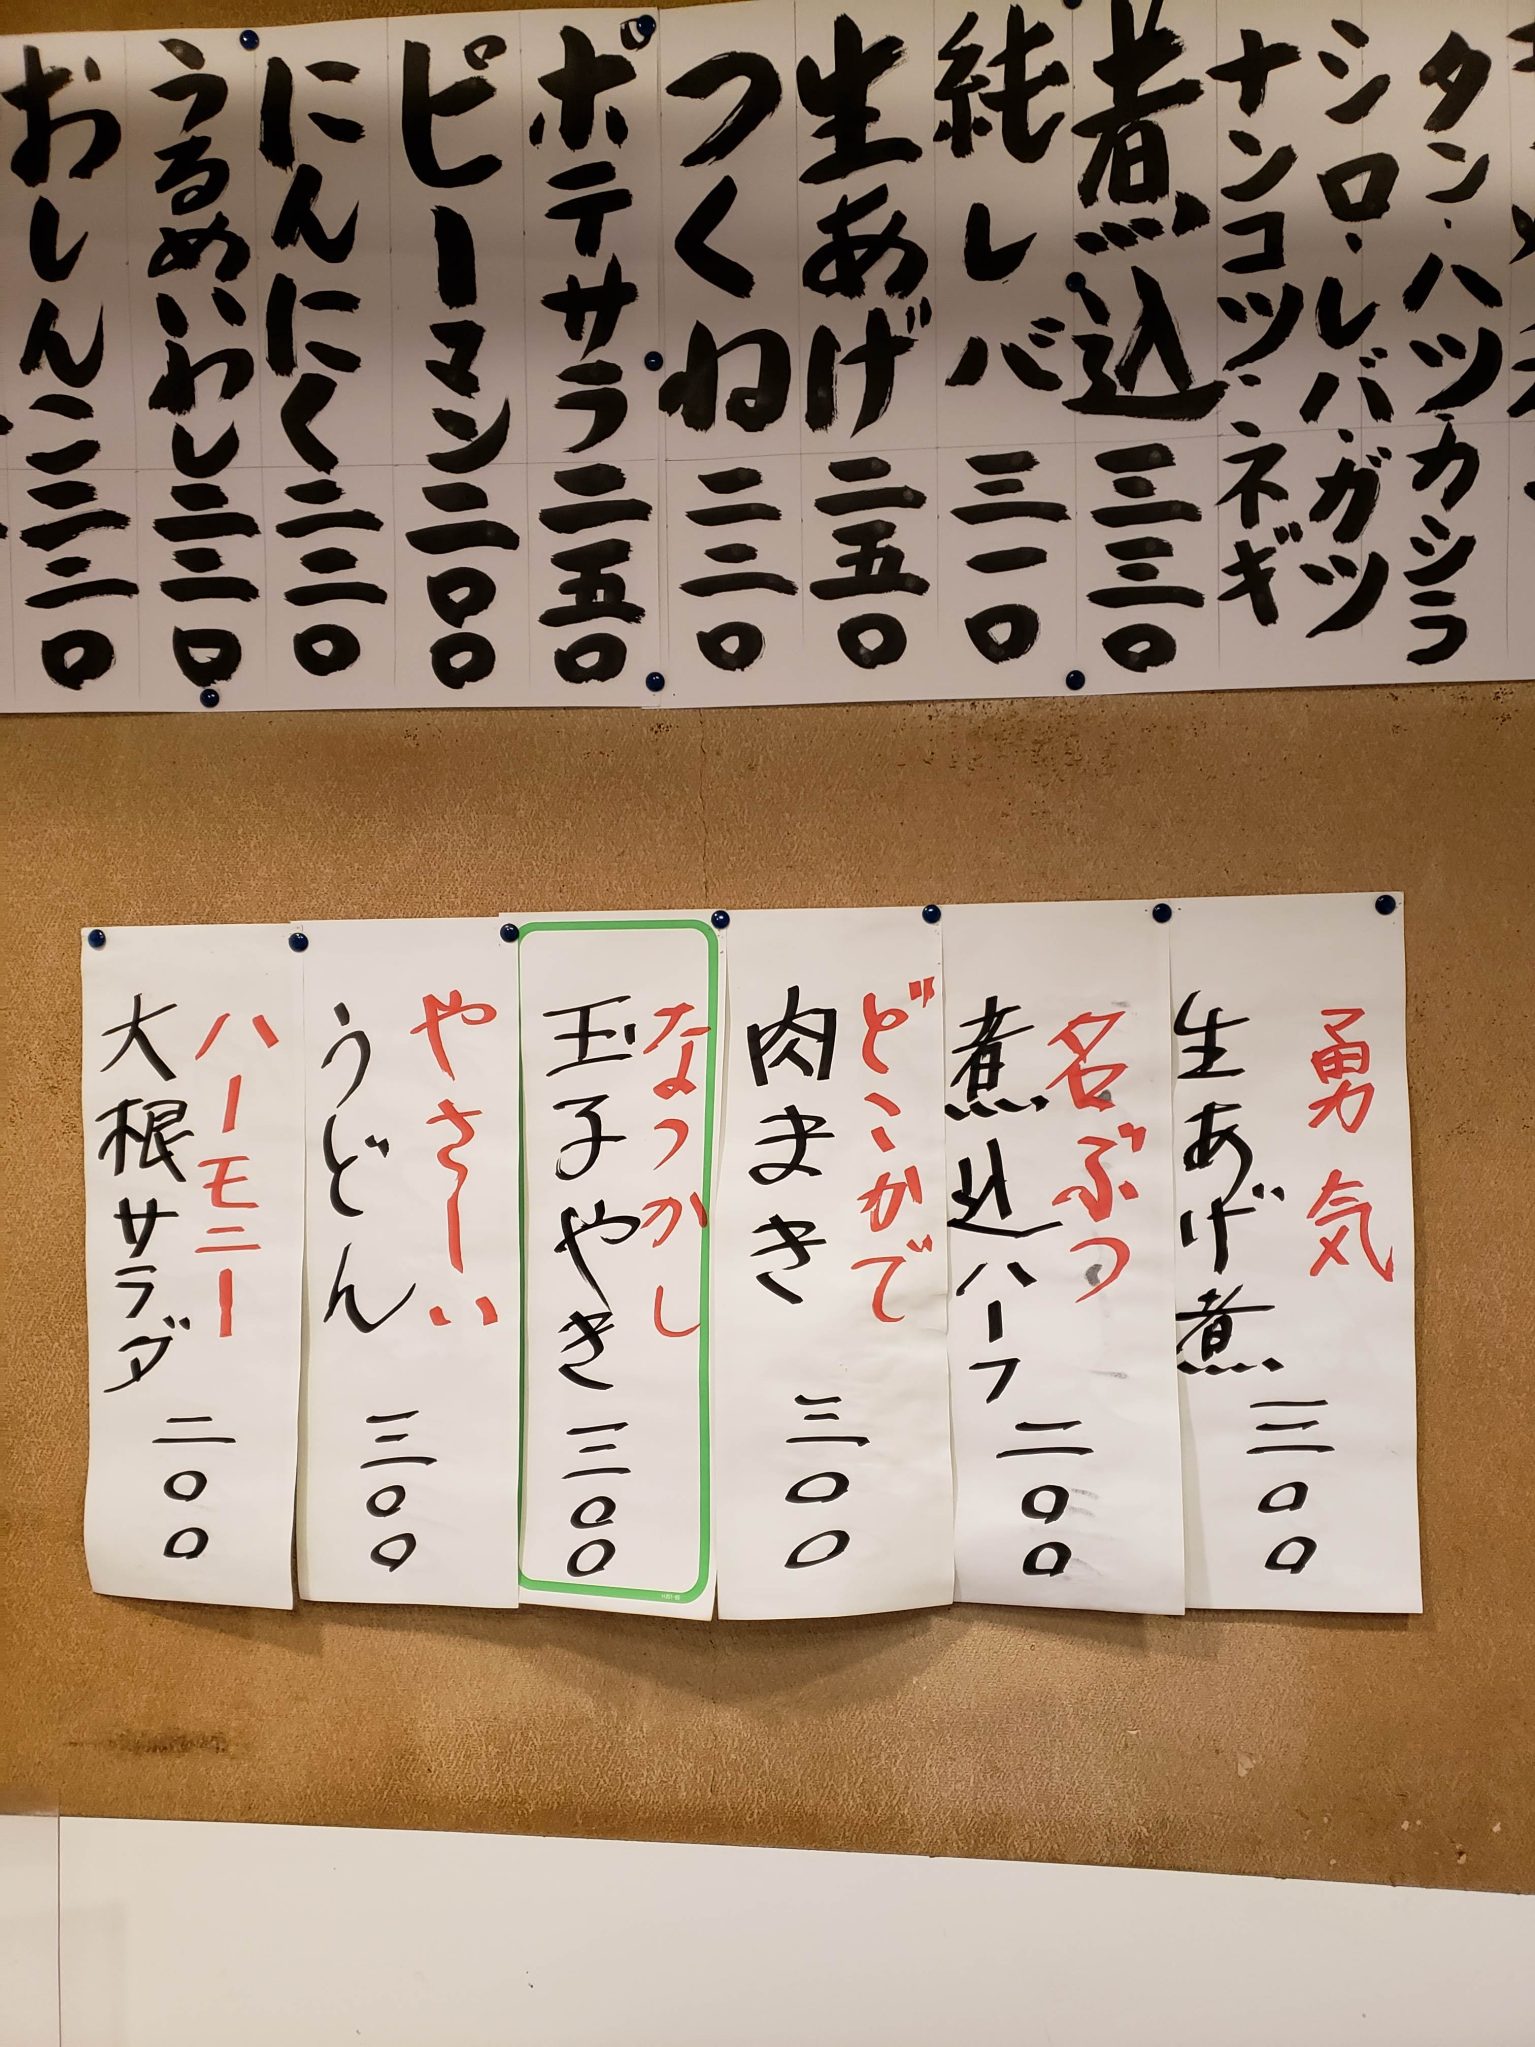 タン・ハツ・カシラ
シロ・レバ・ガツ
ナンコツ・ネギ
煮込三三〇
純レバ三一〇
生あげ二五〇
つくね二二〇
ポテサラ二五〇
ピーマン二〇〇
にんにく二二〇
うるめいわし二二〇
おしんこ二二〇
勇気
生あげ煮三〇〇
名ぶつ
煮込ハーフ二〇〇
どこかで
肉まき三〇〇
なつかし
玉子やき三〇〇
やさーい
うどん三〇〇
ハーモニー
大根サラダ二〇〇